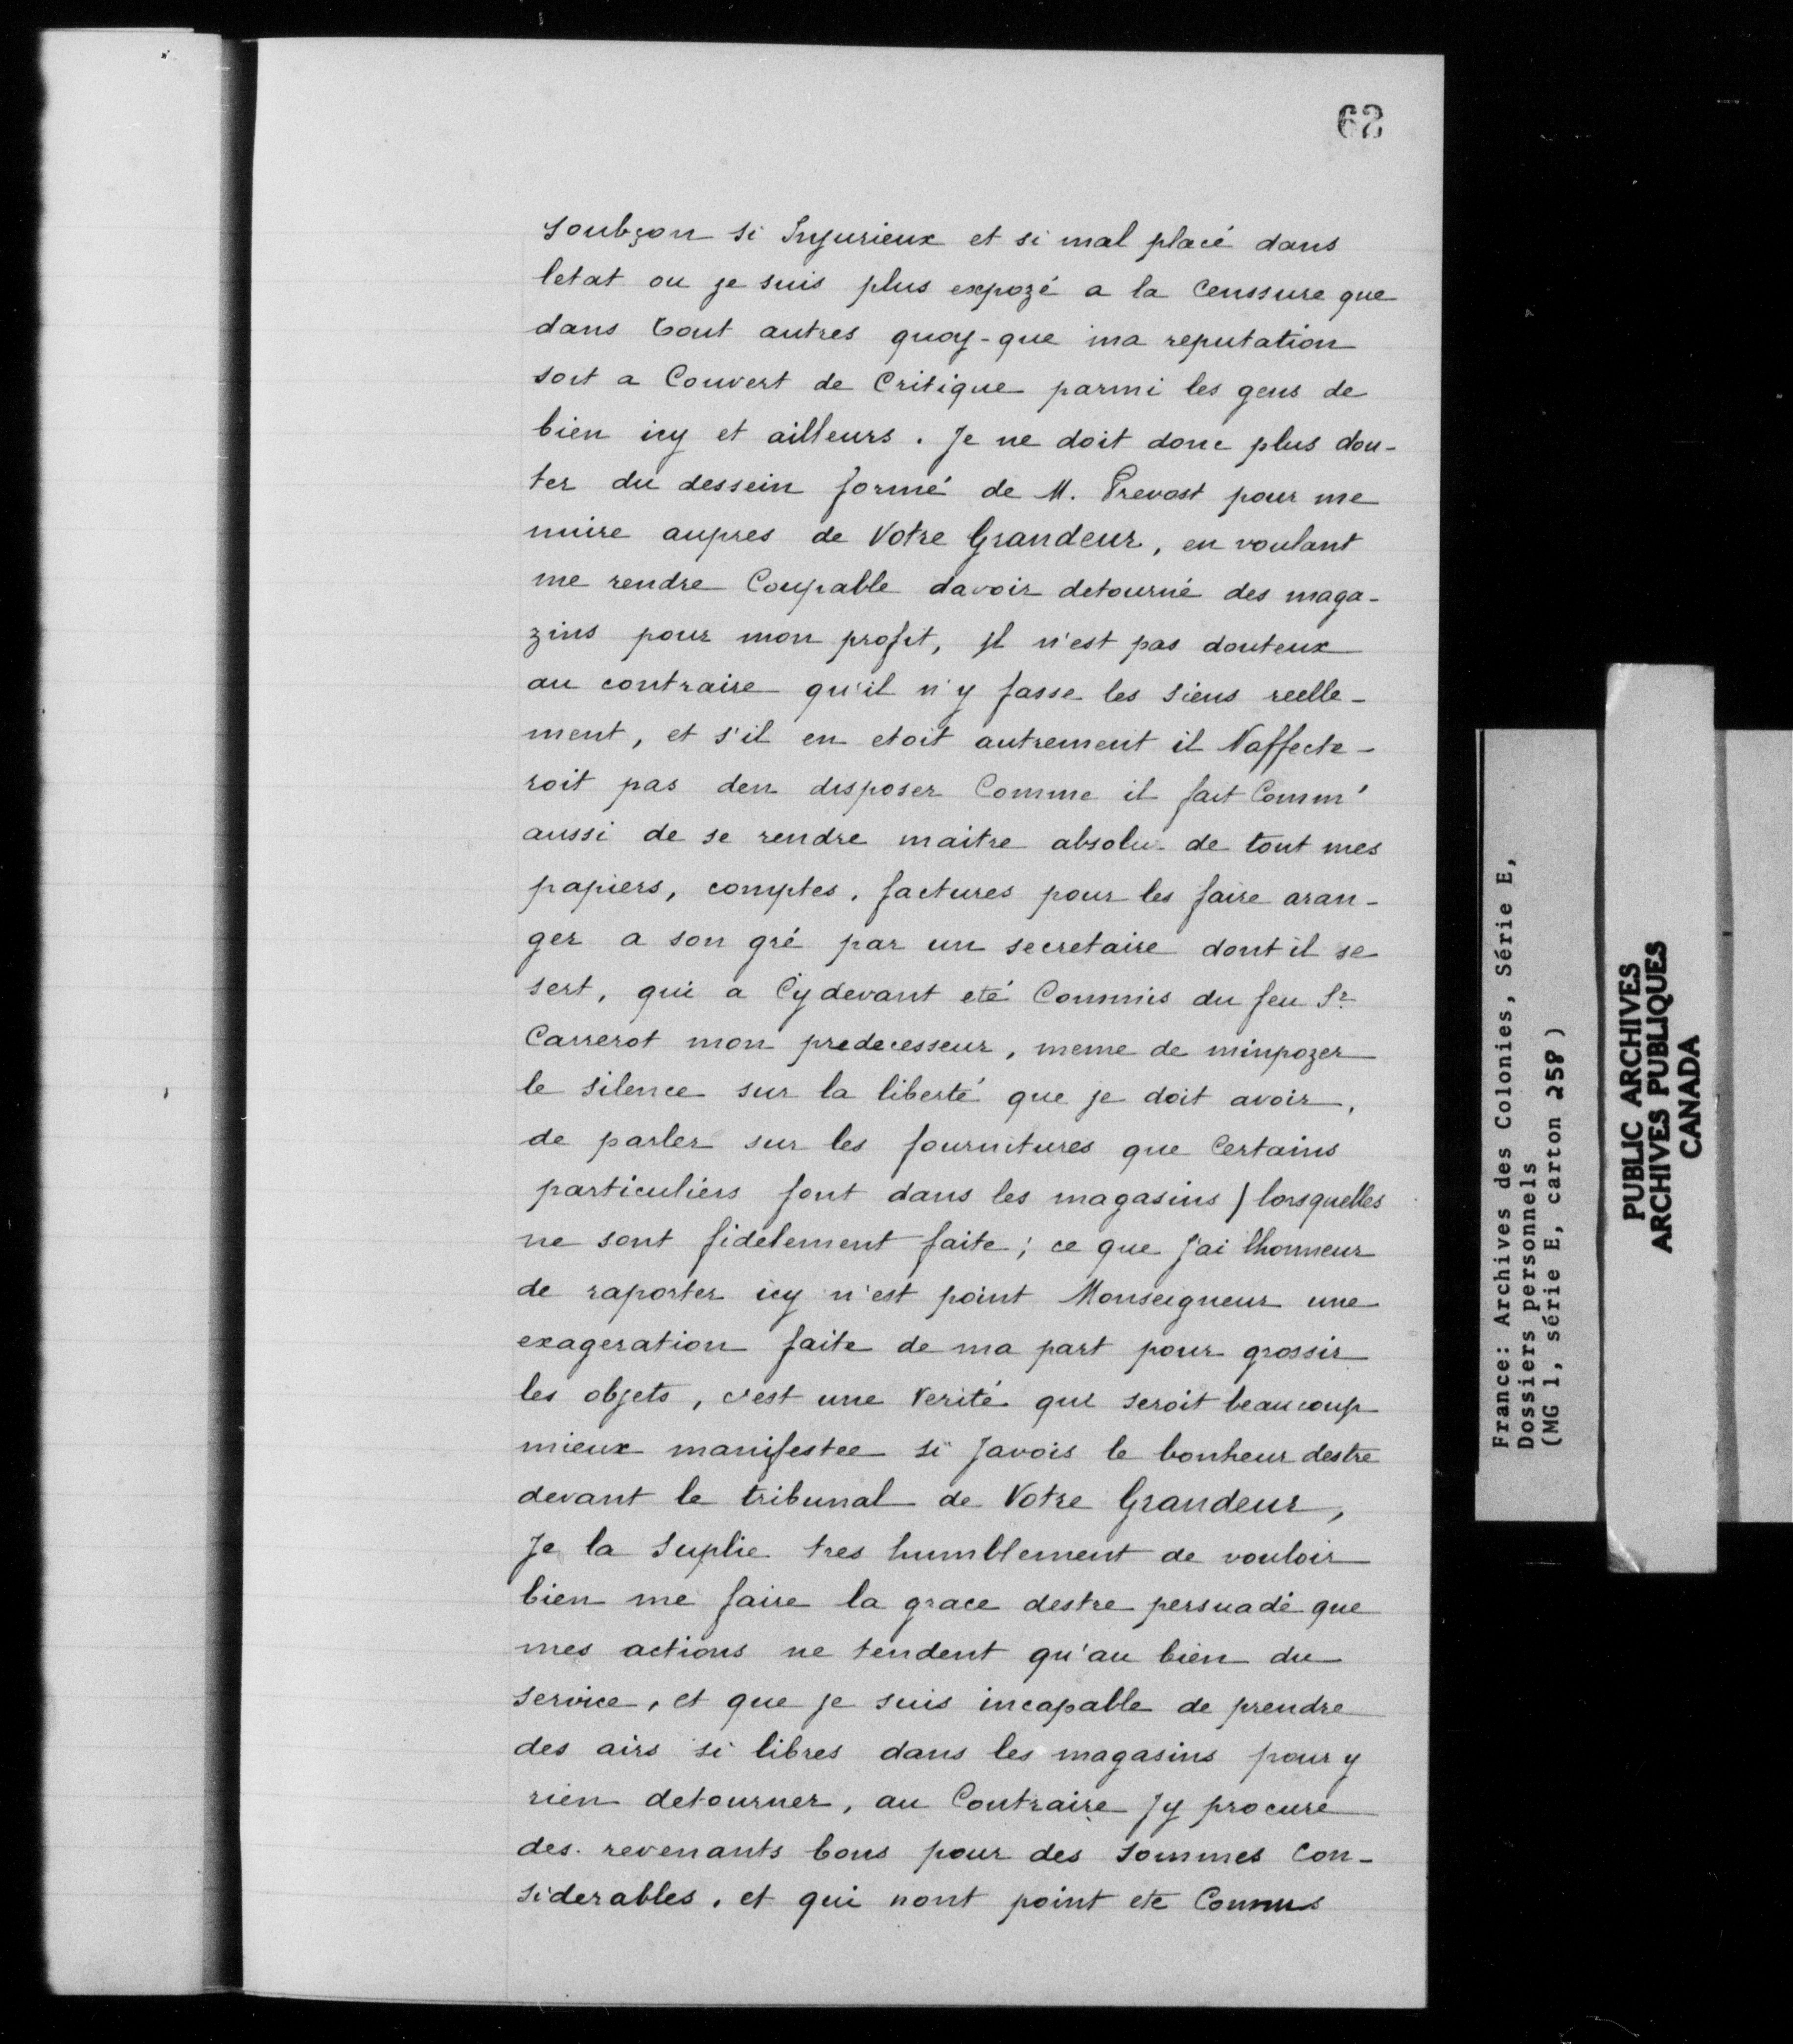 62
soubçon si Injurieux et si mal placé dans
letat ou je suis plus expozé a la Censsure que
dans tout autres quoy-que ma reputation
soit a Couvert de Critique parmi les gens de
bien icy et ailleurs. Je ne doit donc plus dou-
ter du dessein formé de M. Prevost pour me
nuire aupres de Votre Grandeur, en voulant
me rendre Coupable davoir detourné des maga-
zins pour mon profit, il n'est pas douteux
au contraire qu'il n'y fasse les siens reelle-
ment, et s'il en etoit autrement il Naffecte-
roit pas den disposer Comme il fait Comm'
aussi de se rendre maitre absolu de tout mes
papiers, comptes, factures pour les faire aran-
ger a son gré par un secretaire dont il se
sert, qui a Cydevant eté Commis du feu Sr.
Carrerot mon predecesseur, meme de minpozer
le silence sur la liberté que je doit avoir,
de parler sur les fournitures que Certains
particuliers font dans les magasins) lorsquelles
ne sont fidelement faite; ce que J'ai lhonneur
de raporter icy n'est point Monseigneur une
exageration faite de ma part pour grossir
les objets, c'est une Verité qui seroit beaucoup
mieux manifestee si Javois le bonheur destre
devant le tribunal de Votre Grandeur,
Je la suplie tres humblement de vouloir
bien me faire la grace destre persuadé que
mes actions ne tendent qu'au bien du
service, et que je suis incapable de prendre
des airs si libres dans les magasins pour y
rien detourner, au Contraire Jy procure
des revenants bons pour des sommes Con-
siderables, et qui nont point ete Connus
France: Archives des Colonies, Série E,
Dossiers personnels
(MG 1, série E, carton 258)
PUBLIC ARCHIVES
ARCHIVES PUBLIQUES
CANADA